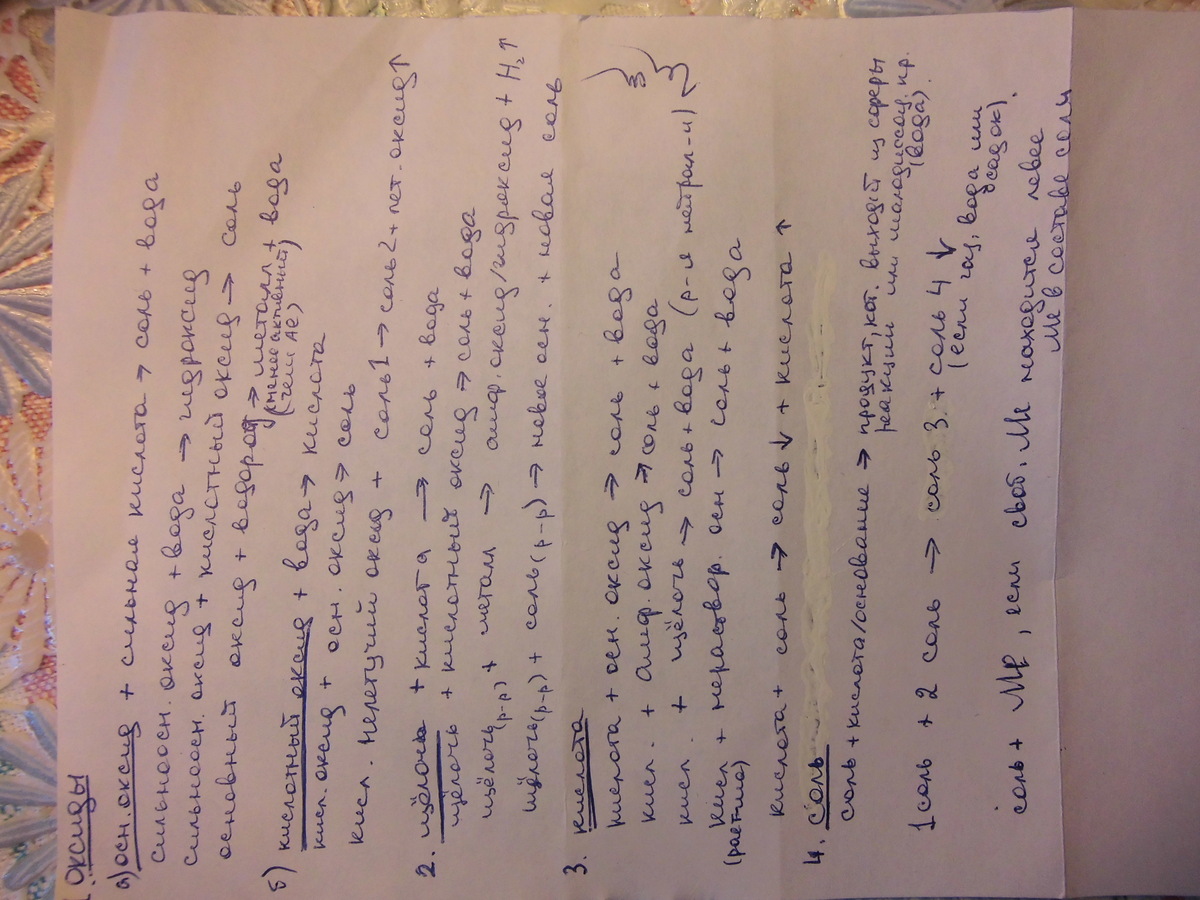 1. Оксиды
а) осн. оксид + сильная кислота → соль + вода
сильноосн. оксид + вода → гидроксид
сильноосн. оксид + кислотный оксид → соль
основный оксид + водород → металл + вода
(менее активный,
чем Al)
б) кислотный оксид + вода → кислота
кисл. оксид + осн. оксид → соль
кисл. нелетучий оксид + соль 1 → соль 2 + лет. оксид ↑
2. щёлочь + кислота → соль + вода
щёлочь + кислотный оксид → соль + вода
щёлочь (р-р) + метал → амф. оксид/гидроксид + H₂↑
щёлочь (р-р) + соль (р-р) → новое осн. + новая соль
3. кислота
кислота + осн. оксид → соль + вода
кисл. + амф. оксид → соль + вода
кисл. + щёлочь → соль + вода (р-я нейтрал-и)
кисл + нераствор. осн → соль + вода
(раствио)
кислота + соль → соль ↓ + кислота ↑
4. Соль
соль + кислота/основание → продукт, кот. выходит из сферы
реакции или малодиссоц. пр.
(вода).
1 соль + 2 соль → соль 3 + соль 4 ↓
(если газ, вода или
осадок).
соль + Ме, если своб. Ме находится левее
Ме в составе соли